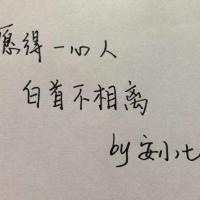 愿得一心人
白首不相离
by 安小七